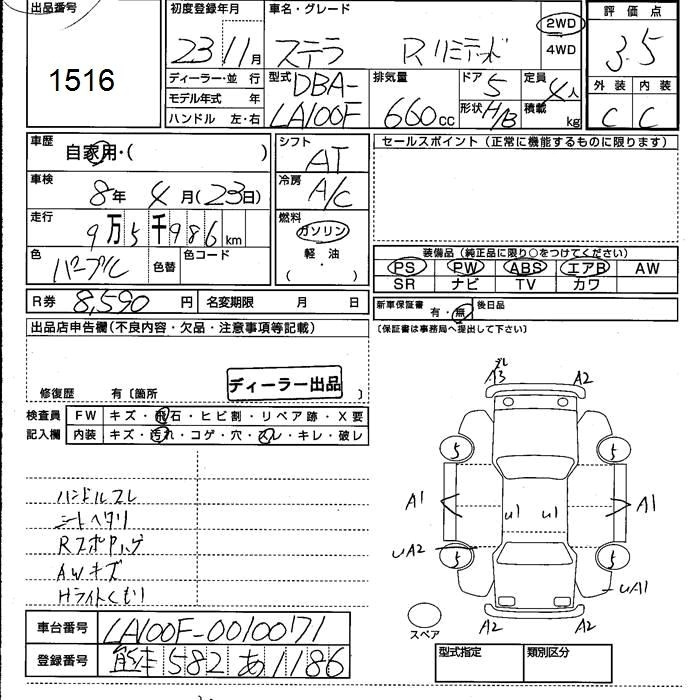 出品番号
1516
初度登録年月
23 11月
車名・グレード
ステラ Rリミテッド
2WD
4WD
評価点
3.5
ディーラー・並 行
モデル年式 年
ハンドル 左・右
型式 DBA-
LA100F
排気量
660cc
ドア 5
形状 H/B
定員 4人
積載 kg
外装 内装
C C
車歴
自家用・( )
車検
8年 4月(23日)
走行
9万5千986km
色
パープル
色替
色コード
シフト
AT
冷房
A/C
燃料
ガソリン
軽・油
( ・ )
セールスポイント(正常に機能するものに限ります)
装備品(純正品に限り○をつけてください)
PS PW ABS エアB AW
SR ナビ TV カワ
R券 8,590円
名変期限 月 日
新車保証書 有・無
後日品
(保証書は事務局へ提出して下さい)
出品店申告欄(不良内容・欠品・注意事項等記載)
ディーラー出品
修復歴 有〔箇所 〕
検査員
記入欄
FW キズ・飛石・ヒビ割・リペア跡・X要
内装 キズ・汚れ・コゲ・穴・スレ・キレ・破レ
ハンドルスレ
シートヘタリ
AWキズ
Hライトくもり
A3 A2
5 5
A1 U1 U1 A1
UA2 5 5
UA1
A2 A2
スペア
車台番号 LA100F-0010071
登録番号 熊本 582 あ 1186
型式指定 類別区分